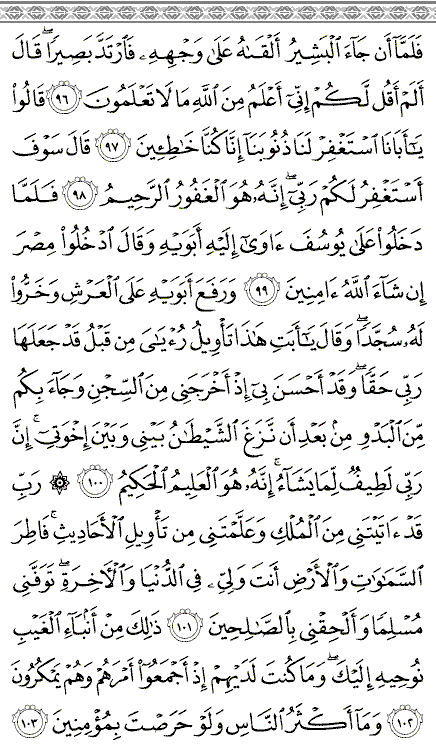 فَلَمَّآ أَن جَآءَ ٱلْبَشِيرُ أَلْقَىٰهُ عَلَىٰ وَجْهِهِۦ فَٱرْتَدَّ بَصِيرًا ۖ قَالَ
أَلَمْ أَقُل لَّكُمْ إِنِّىٓ أَعْلَمُ مِنَ ٱللَّهِ مَا لَا تَعْلَمُونَ ٩٦ قَالُوا۟
يَـٰٓأَبَانَا ٱسْتَغْفِرْ لَنَا ذُنُوبَنَآ إِنَّا كُنَّا خَـٰطِـِٔينَ ٩٧ قَالَ سَوْفَ
أَسْتَغْفِرُ لَكُمْ رَبِّىٓ ۖ إِنَّهُۥ هُوَ ٱلْغَفُورُ ٱلرَّحِيمُ ٩٨ فَلَمَّا
دَخَلُوا۟ عَلَىٰ يُوسُفَ ءَاوَىٰٓ إِلَيْهِ أَبَوَيْهِ وَقَالَ ٱدْخُلُوا۟ مِصْرَ
إِن شَآءَ ٱللَّهُ ءَامِنِينَ ٩٩ وَرَفَعَ أَبَوَيْهِ عَلَى ٱلْعَرْشِ وَخَرُّوا۟
لَهُۥ سُجَّدًا ۖ وَقَالَ يَـٰٓأَبَتِ هَـٰذَا تَأْوِيلُ رُءْيَـٰىَ مِن قَبْلُ قَدْ جَعَلَهَا
رَبِّى حَقًّا ۖ وَقَدْ أَحْسَنَ بِىٓ إِذْ أَخْرَجَنِى مِنَ ٱلسِّجْنِ وَجَآءَ بِكُم
مِّنَ ٱلْبَدْوِ مِنۢ بَعْدِ أَن نَّزَغَ ٱلشَّيْطَـٰنُ بَيْنِى وَبَيْنَ إِخْوَتِىٓ ۚ إِنَّ
رَبِّى لَطِيفٌ لِّمَا يَشَآءُ ۚ إِنَّهُۥ هُوَ ٱلْعَلِيمُ ٱلْحَكِيمُ ١٠٠ ۞ رَبِّ
قَدْ ءَاتَيْتَنِى مِنَ ٱلْمُلْكِ وَعَلَّمْتَنِى مِن تَأْوِيلِ ٱلْأَحَادِيثِ ۚ فَاطِرَ
ٱلسَّمَـٰوَٰتِ وَٱلْأَرْضِ أَنتَ وَلِىِّۦ فِى ٱلدُّنْيَا وَٱلْـَٔاخِرَةِ ۖ تَوَفَّنِى
مُسْلِمًا وَأَلْحِقْنِى بِٱلصَّـٰلِحِينَ ١٠١ ذَٰلِكَ مِنْ أَنۢبَآءِ ٱلْغَيْبِ
نُوحِيهِ إِلَيْكَ ۖ وَمَا كُنتَ لَدَيْهِمْ إِذْ أَجْمَعُوٓا۟ أَمْرَهُمْ وَهُمْ يَمْكُرُونَ
١٠٢ وَمَآ أَكْثَرُ ٱلنَّاسِ وَلَوْ حَرَصْتَ بِمُؤْمِنِينَ ١٠٣